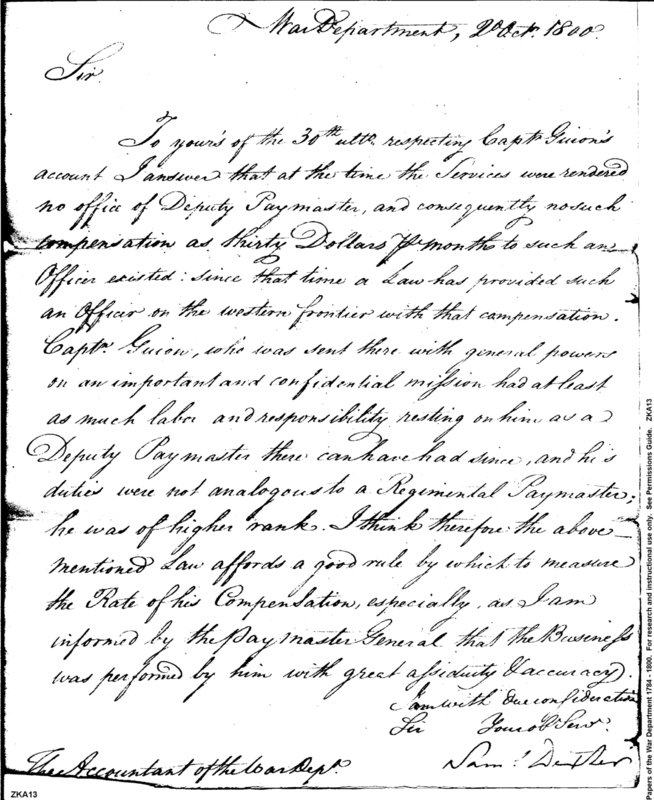 War Department, 2d Octr. 1800.
Sir
To yours of the 30th ulto. respecting Captn. Guion's
account I answer that at the time the Services were rendered
no office of Deputy Paymaster, and consequently no such
compensation as thirty Dollars pr month to such an
Officer existed: since that time a Law has provided such
an Officer on the western frontier with that compensation.
Captn. Guion, who was sent there with general powers
on an important and confidential mission had at least
as much labor and responsibility resting on him as a
Deputy Paymaster there can have had since, and his
duties were not analogous to a Regimental Paymaster;
he was of higher rank. I think therefore the above-
mentioned Law affords a good rule by which to measure
the Rate of his Compensation, especially, as I am
informed by the Paymaster General that the Business
was performed by him with great assiduity & accuracy.
I am with due consideration
Sir Your ob Servt.
Saml. Dexter
The Accountant of the War Dept.
ZKA13
Papers of the War Department 1784 - 1800. For research and instructional use only. See Permissions Guide. ZKA13